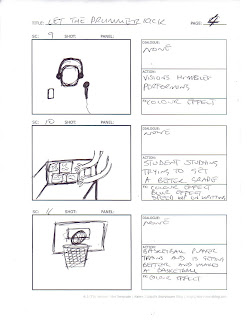 TITLE: LET THE DRUMMER KICK PAGE: 4
SC: 9 SHOT: PANEL:
DIALOGUE:
NONE
ACTION:
VISIONS HIMSELF
PERFORMING
*COLOUR EFFECT
SC: 10 SHOT: PANEL:
DIALOGUE:
NONE
ACTION:
STUDENT STUDYING
TRYING TO GET
A BETTER GRADE
*COLOUR EFFECT
BLUR EFFECT
SPEED OF WRITING
SC: 11 SHOT: PANEL:
DIALOGUE:
NONE
ACTION:
BASKETBALL PLAYER
TRAINS AND IS GETTING
BETTER AND MAKES
A BASKETBALL
*COLOUR EFFECT